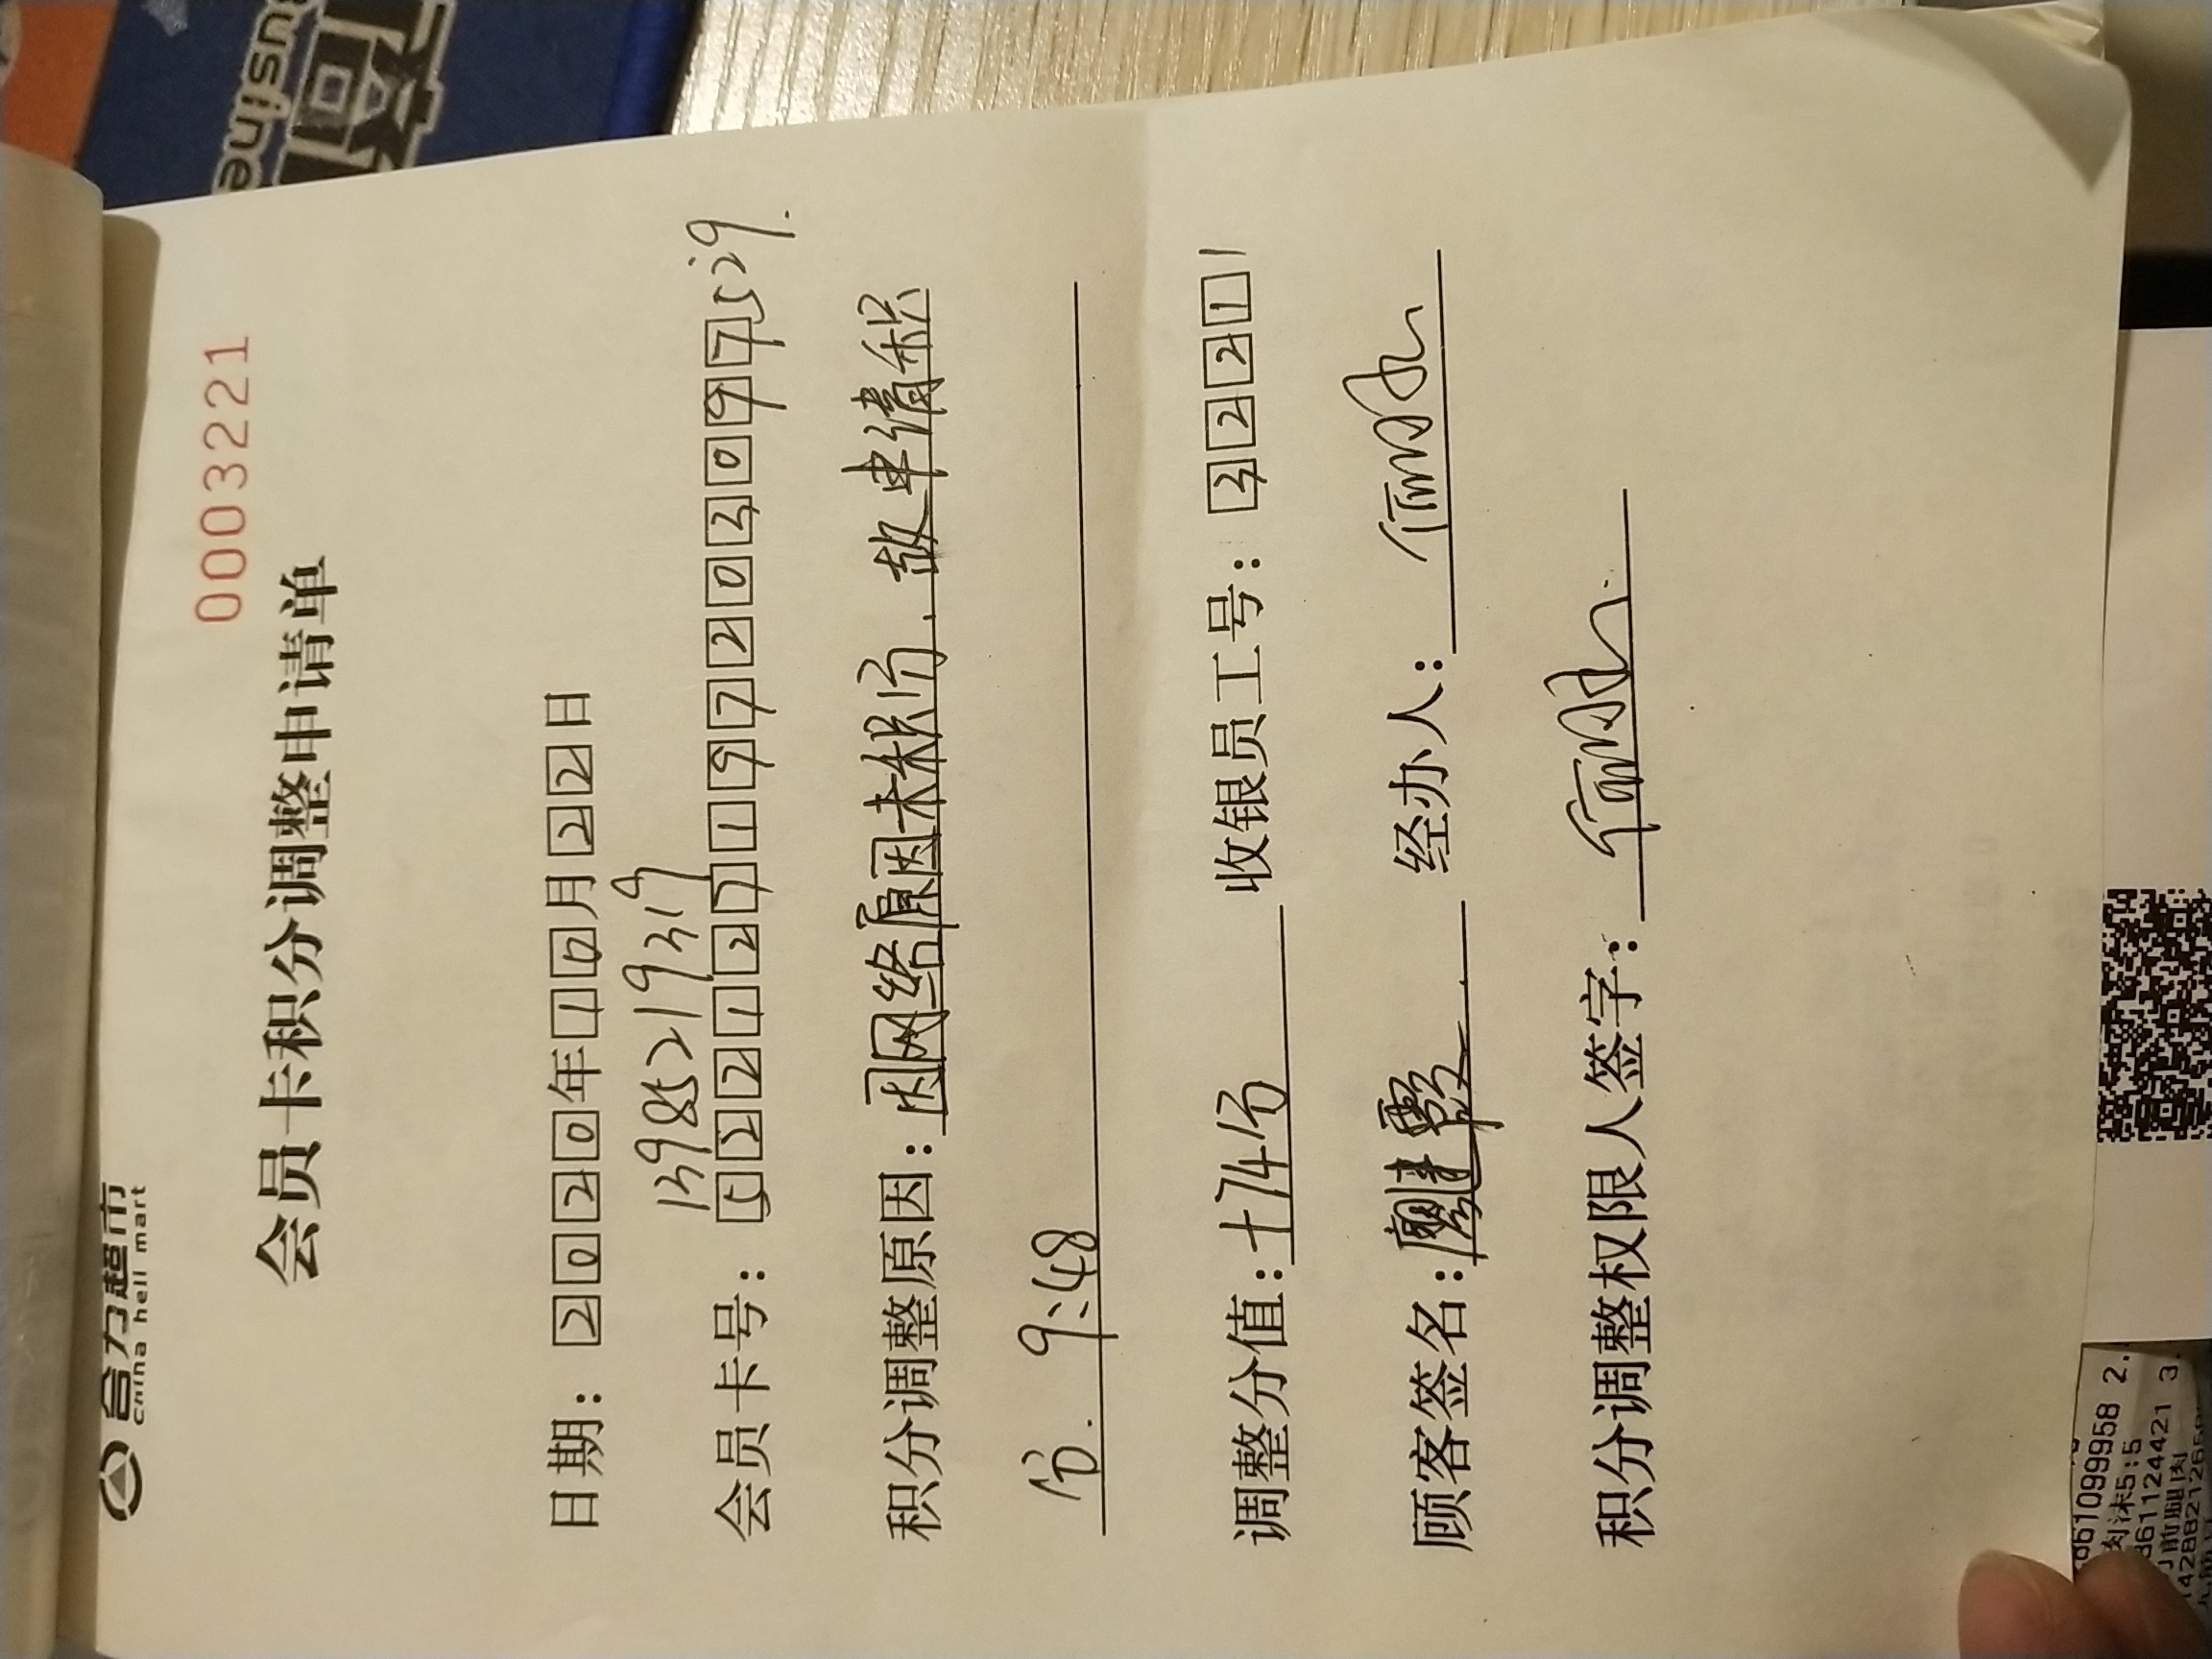 合力超市
china heli mart
0003221
会员卡积分调整申请单
日期：2020年10月22日
13985219319
会员卡号：522127197203097529.
积分调整原因：因网络原因未积分，故申请积
分. 9:48
调整分值：+74分 收银员工号：32211
顾客签名： 经办人：
积分调整权限人签字：
商
Busine